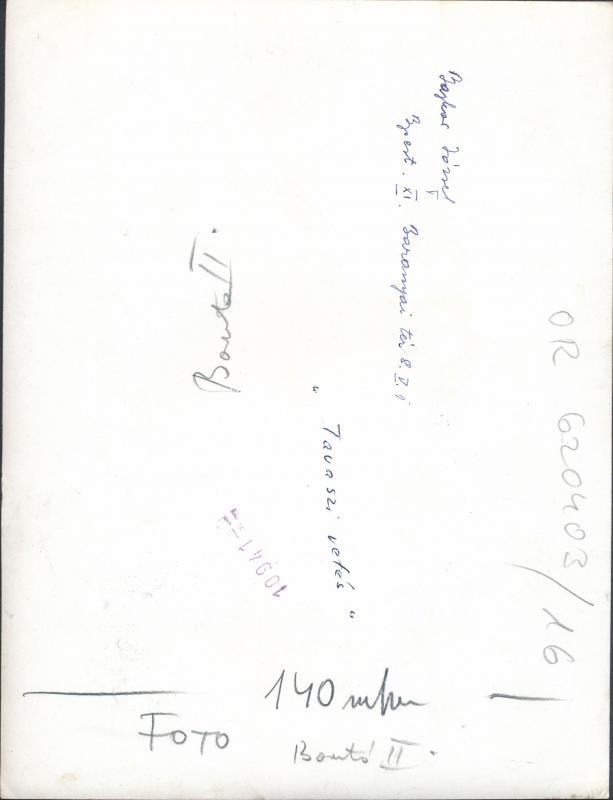 József
Bpest. XI. Baranyai tér 8. V. j
„Tavaszi vetés"
OR 620403/16
Bontó II.
10941-
140 m/m
FOTO
Bontó II.